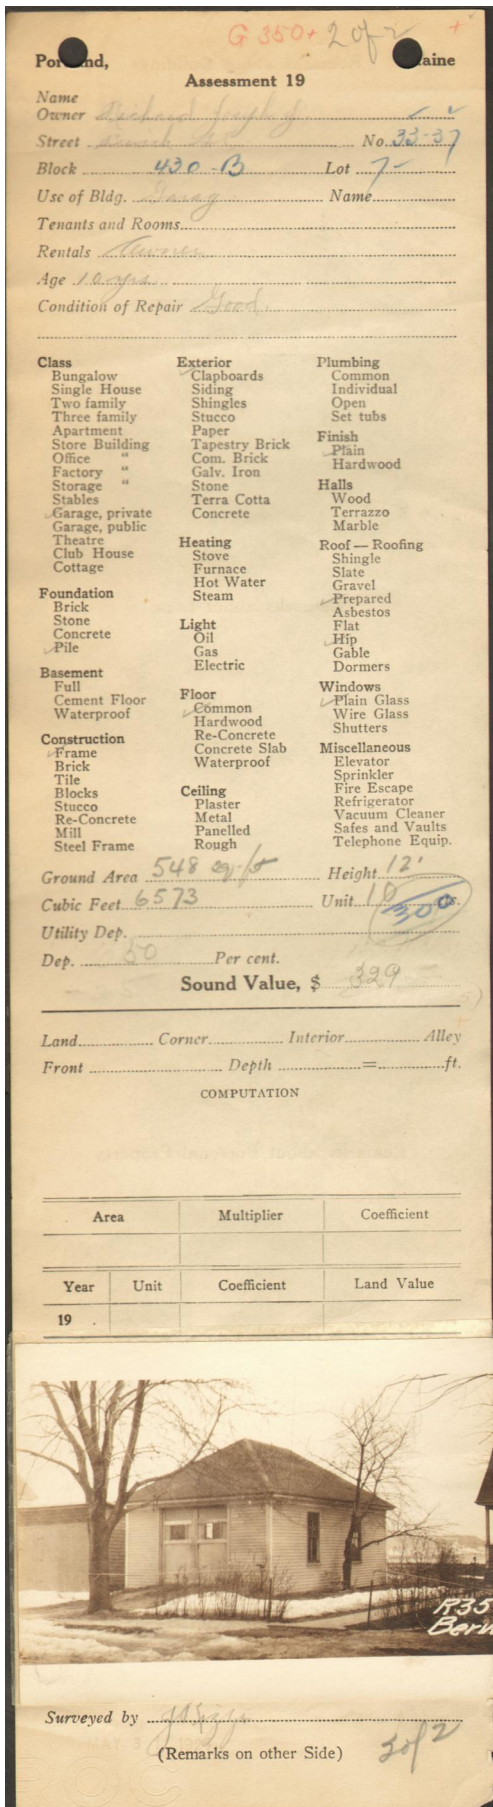 G 350+ 2 of 2 +
Portland, Maine
Assessment 19
Name
Owner Richard
Street Berwick St. No. 33-37
Block 430-B Lot 7-
Use of Bldg. Garag Name
Tenants and Rooms
Rentals Owner
Age 10 yrs.
Condition of Repair Good.
Class
Bungalow
Single House
Two family
Three family
Apartment
Store Building
Office "
Factory "
Storage "
Stables
Garage, private
Garage, public
Theatre
Club House
Cottage
Foundation
Brick
Stone
Concrete
Pile
Basement
Full
Cement Floor
Waterproof
Construction
Frame
Brick
Tile
Blocks
Stucco
Re-Concrete
Mill
Steel Frame
Exterior
Clapboards
Siding
Shingles
Stucco
Paper
Tapestry Brick
Com. Brick
Galv. Iron
Stone
Terra Cotta
Concrete
Heating
Stove
Furnace
Hot Water
Steam
Light
Oil
Gas
Electric
Floor
Common
Hardwood
Re-Concrete
Concrete Slab
Waterproof
Ceiling
Plaster
Metal
Panelled
Rough
Plumbing
Common
Individual
Open
Set tubs
Finish
Plain
Hardwood
Halls
Wood
Terrazzo
Marble
Roof — Roofing
Shingle
Slate
Gravel
Prepared
Asbestos
Flat
Hip
Gable
Dormers
Windows
Plain Glass
Wire Glass
Shutters
Miscellaneous
Elevator
Sprinkler
Fire Escape
Refrigerator
Vacuum Cleaner
Safes and Vaults
Telephone Equip.
Ground Area 548 sq. ft Height 12'
Cubic Feet 6573 Unit 10 cs.
300
Utility Dep.
Dep. 50 Per cent.
Sound Value, $ 329
Land Corner Interior Alley
Front Depth = ft.
COMPUTATION
Area Multiplier Coefficient
Year Unit Coefficient Land Value
19 .
R35
Berw
Surveyed by
(Remarks on other Side)
2 of 2